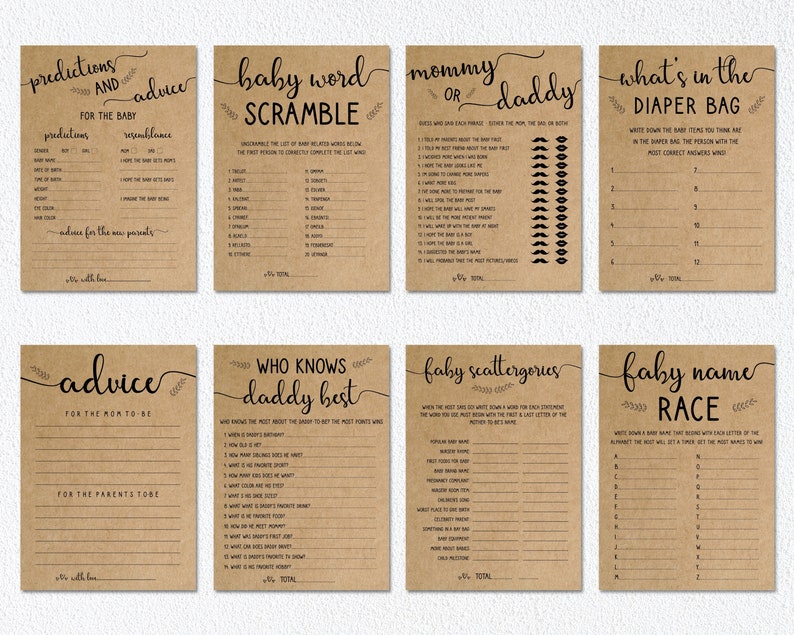 predictions
AND
advice
FOR THE BABY
predictions
resemblance
GENDER BOY GIRL
BABY NAME
DATE OF BIRTH
TIME OF BIRTH
WEIGHT
HEIGHT
EYE COLOR
HAIR COLOR
MOM DAD
I HOPE THE BABY GETS MOM'S
I HOPE THE BABY GETS DAD'S
I IMAGINE THE BABY BEING
advice for the new parents
with love
baby word
SCRAMBLE
UNSCRAMBLE THE LIST OF BABY RELATED WORDS BELOW.
THE FIRST PERSON TO CORRECTLY COMPLETE THE LIST WINS!
1
2
3
4
5
6
7
8
9
10
11
12
13
14
15
16
17
18
19
20
TOTAL
mommy
OR
daddy
GUESS WHO SAID EACH PHRASE - EITHER THE MOM, THE DAD, OR BOTH!
1 I TOLD MY PARENTS ABOUT THE BABY FIRST
2 I TOLD MY BEST FRIEND ABOUT THE BABY FIRST
3 I WEIGHED MORE WHEN I WAS BORN
4 I HOPE THE BABY LOOKS LIKE ME
5 I'M GOING TO CHANGE MORE DIAPERS
6 I WANT MORE KIDS
7 I'VE DONE MORE TO PREPARE FOR THE BABY
8 I WILL SPOIL THE BABY MOST
9 I HOPE THE BABY WILL HAVE MY SMARTS
10 I WILL BE THE MORE PATIENT PARENT
11 I WILL WAKE UP WITH THE BABY AT NIGHT
12 I HOPE THE BABY IS A BOY
13 I HOPE THE BABY IS A GIRL
14 I SUGGESTED THE BABY'S NAME
15 I WILL PROBABLY TAKE THE MOST PICTURES/VIDEOS
TOTAL
what's in the
DIAPER BAG
WRITE DOWN THE BABY ITEMS YOU THINK ARE
IN THE DIAPER BAG. THE PERSON WITH THE
MOST CORRECT ANSWERS WINS!
1
2
3
4
5
6
7
8
9
10
11
12
TOTAL
advice
FOR THE MOM-TO-BE
FOR THE PARENTS-TO-BE
with love
WHO KNOWS
daddy best
WHO KNOWS THE MOST ABOUT THE DADDY-TO-BE? THE MOST POINTS WINS
1 WHEN IS DADDY'S BIRTHDAY?
2 HOW OLD IS HE?
3 HOW MANY SIBLINGS DOES HE HAVE?
4 WHAT IS HIS FAVORITE SPORT?
5 HOW MANY KIDS DOES HE WANT?
6 WHAT COLOR ARE HIS EYES?
7 WHAT IS HIS SHOE SIZE?
8 WHAT IS DADDY'S FAVORITE DRINK?
9 WHAT IS HE FAVORITE FOOD?
10 HOW DID HE MEET MOMMY?
11 WHAT WAS DADDY'S FIRST JOB?
12 WHAT CAR DOES DADDY DRIVE?
13 WHAT IS DADDY'S FAVORITE TV SHOW?
14 WHAT IS HIS FAVORITE HOBBY?
TOTAL
faby scattergories
WHEN THE HOST SAYS GO! WRITE DOWN A WORD FOR EACH STATEMENT.
THE WORD YOU USE MUST BEGIN WITH THE FIRST & LAST LETTER OF THE
MOTHER-TO-BE'S NAME.
POPULAR BABY NAME
NURSERY RHYME
FIRST FOODS FOR BABY
BABY BRAND NAME
PREGNANCY COMPLAINT
NURSERY ROOM ITEM
CHILDREN'S SONG
WORST PLACE TO GIVE BIRTH
CELEBRITY PARENT
SOMETHING IN A BAY BAG
BABY EQUIPMENT
MOVIE ABOUT BABIES
CHILD MILESTONE
TOTAL
faby name
RACE
WRITE DOWN A BABY NAME THAT BEGINS WITH EACH LETTER OF THE
ALPHABET. THE HOST WILL SET A TIMER. GET THE MOST NAMES TO WIN!
A
B
C
D
E
F
G
H
I
J
K
L
M
N
O
P
Q
R
S
T
U
V
W
X
Y
Z